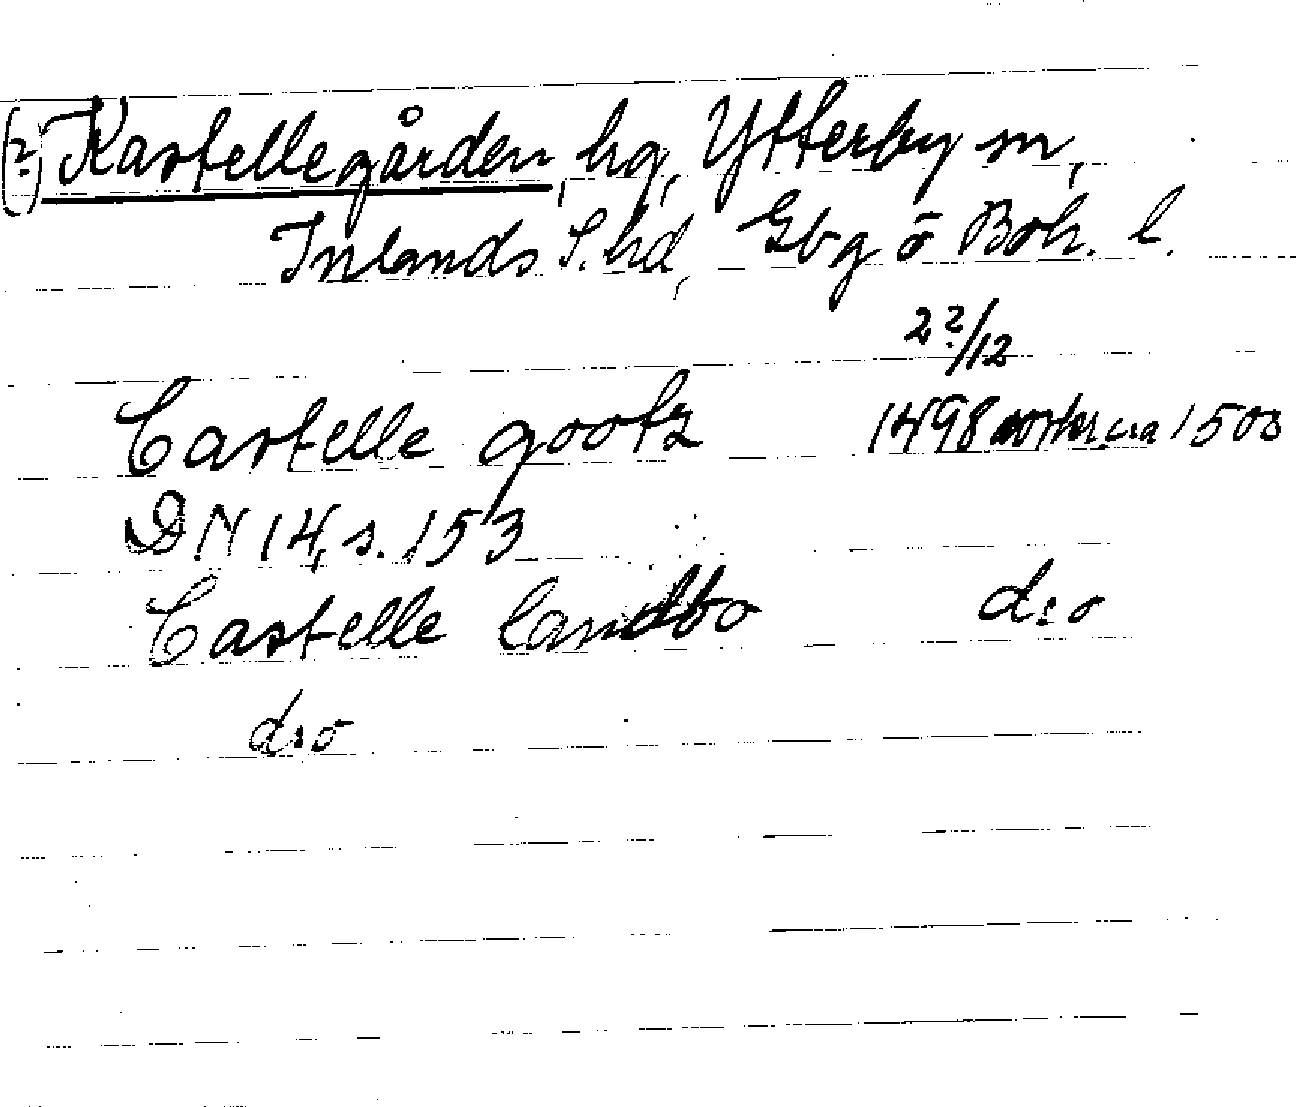 (?) Kastellegården, hg, Ytterby sn,
Inlands S. hd, Gbg o Boh. l.
2?/12
Castelle gootz 1498 ca 1500
DN 14, s. 153
Castelle landbo d:o
d:o